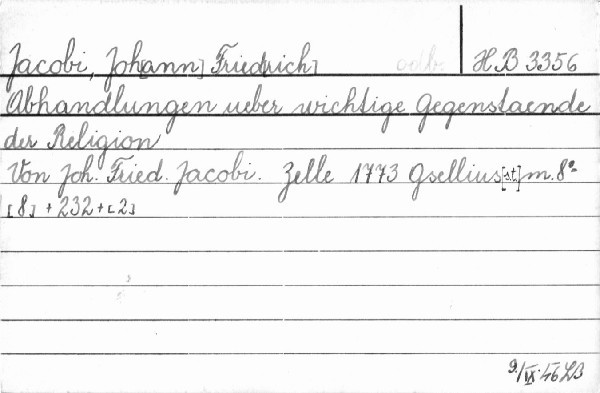 Jacobi, Joh[ann] Fried[rich] H.B 3356
Abhandlungen ueber wichtige Gegenstaende
der Religion
Von Joh. Fried. Jacobi. Zelle 1773 Gsellius[st.] m. 8°
[8] + 232 + [2]
9/IX. 46